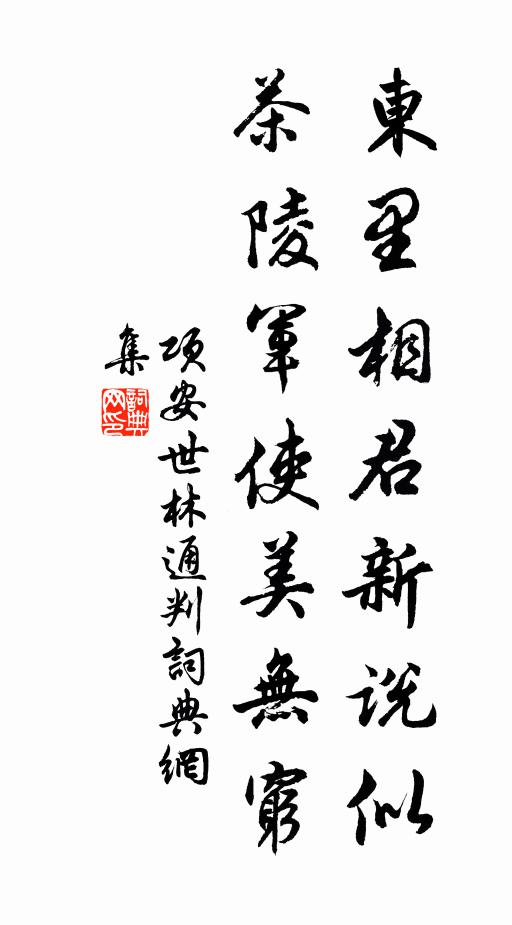 東里相君新説似
茶陵軍使美無窮
項安世林通判詞典網
集
詞典
网印